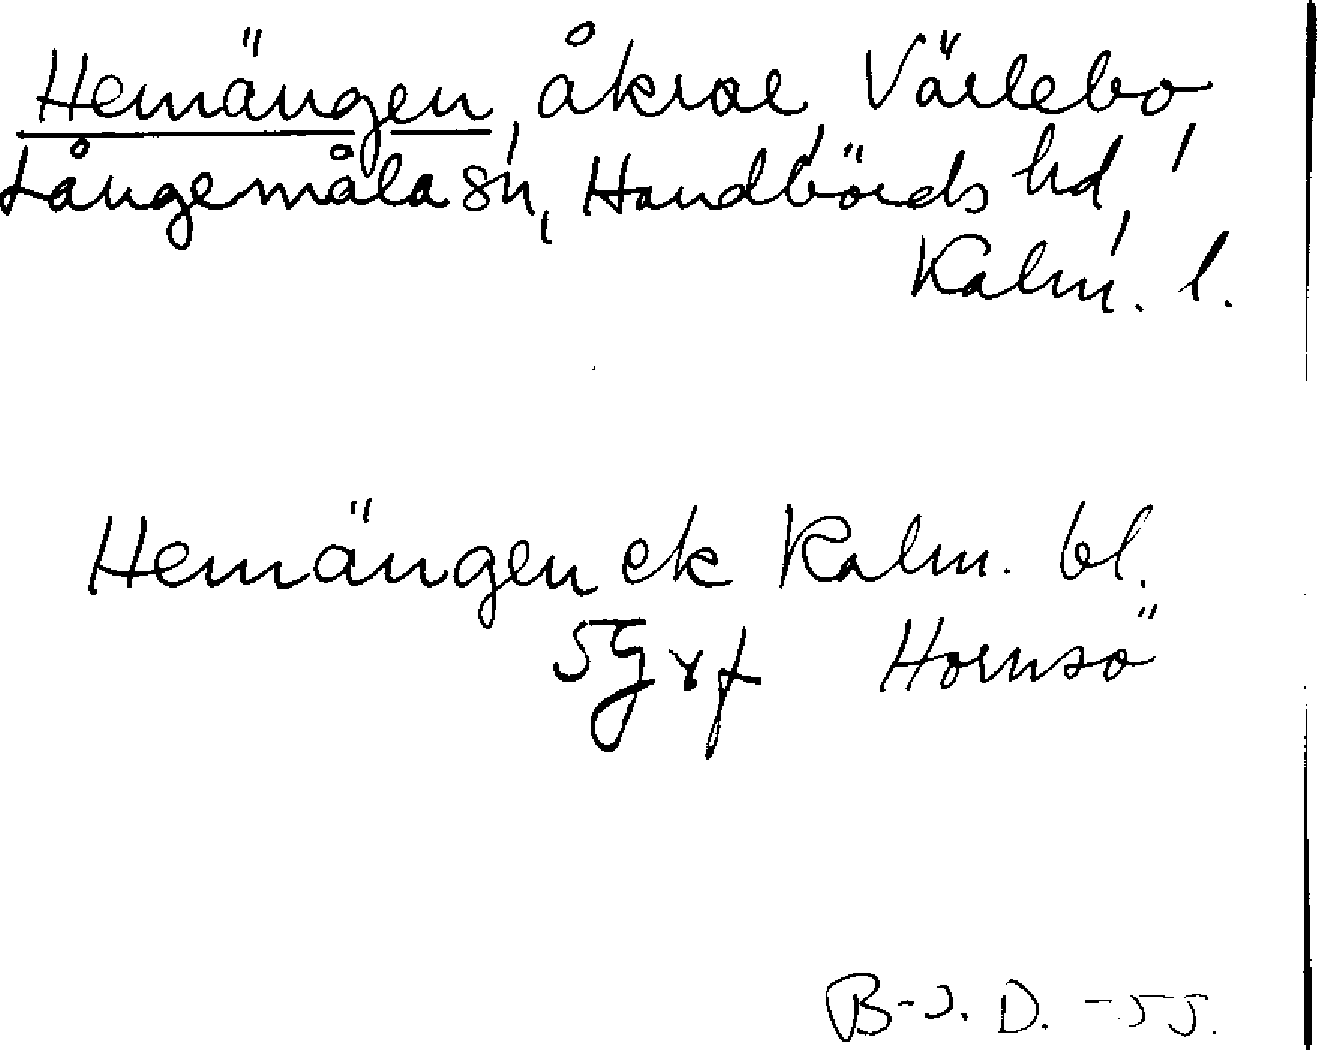 Hemängen, åkrar, Värlebo,
Långemåla sn, Handbörds hd,
Kalm. l.
Hemängen ek Kalm. bl.
5G xf Hornsö
B-J. D. -55.